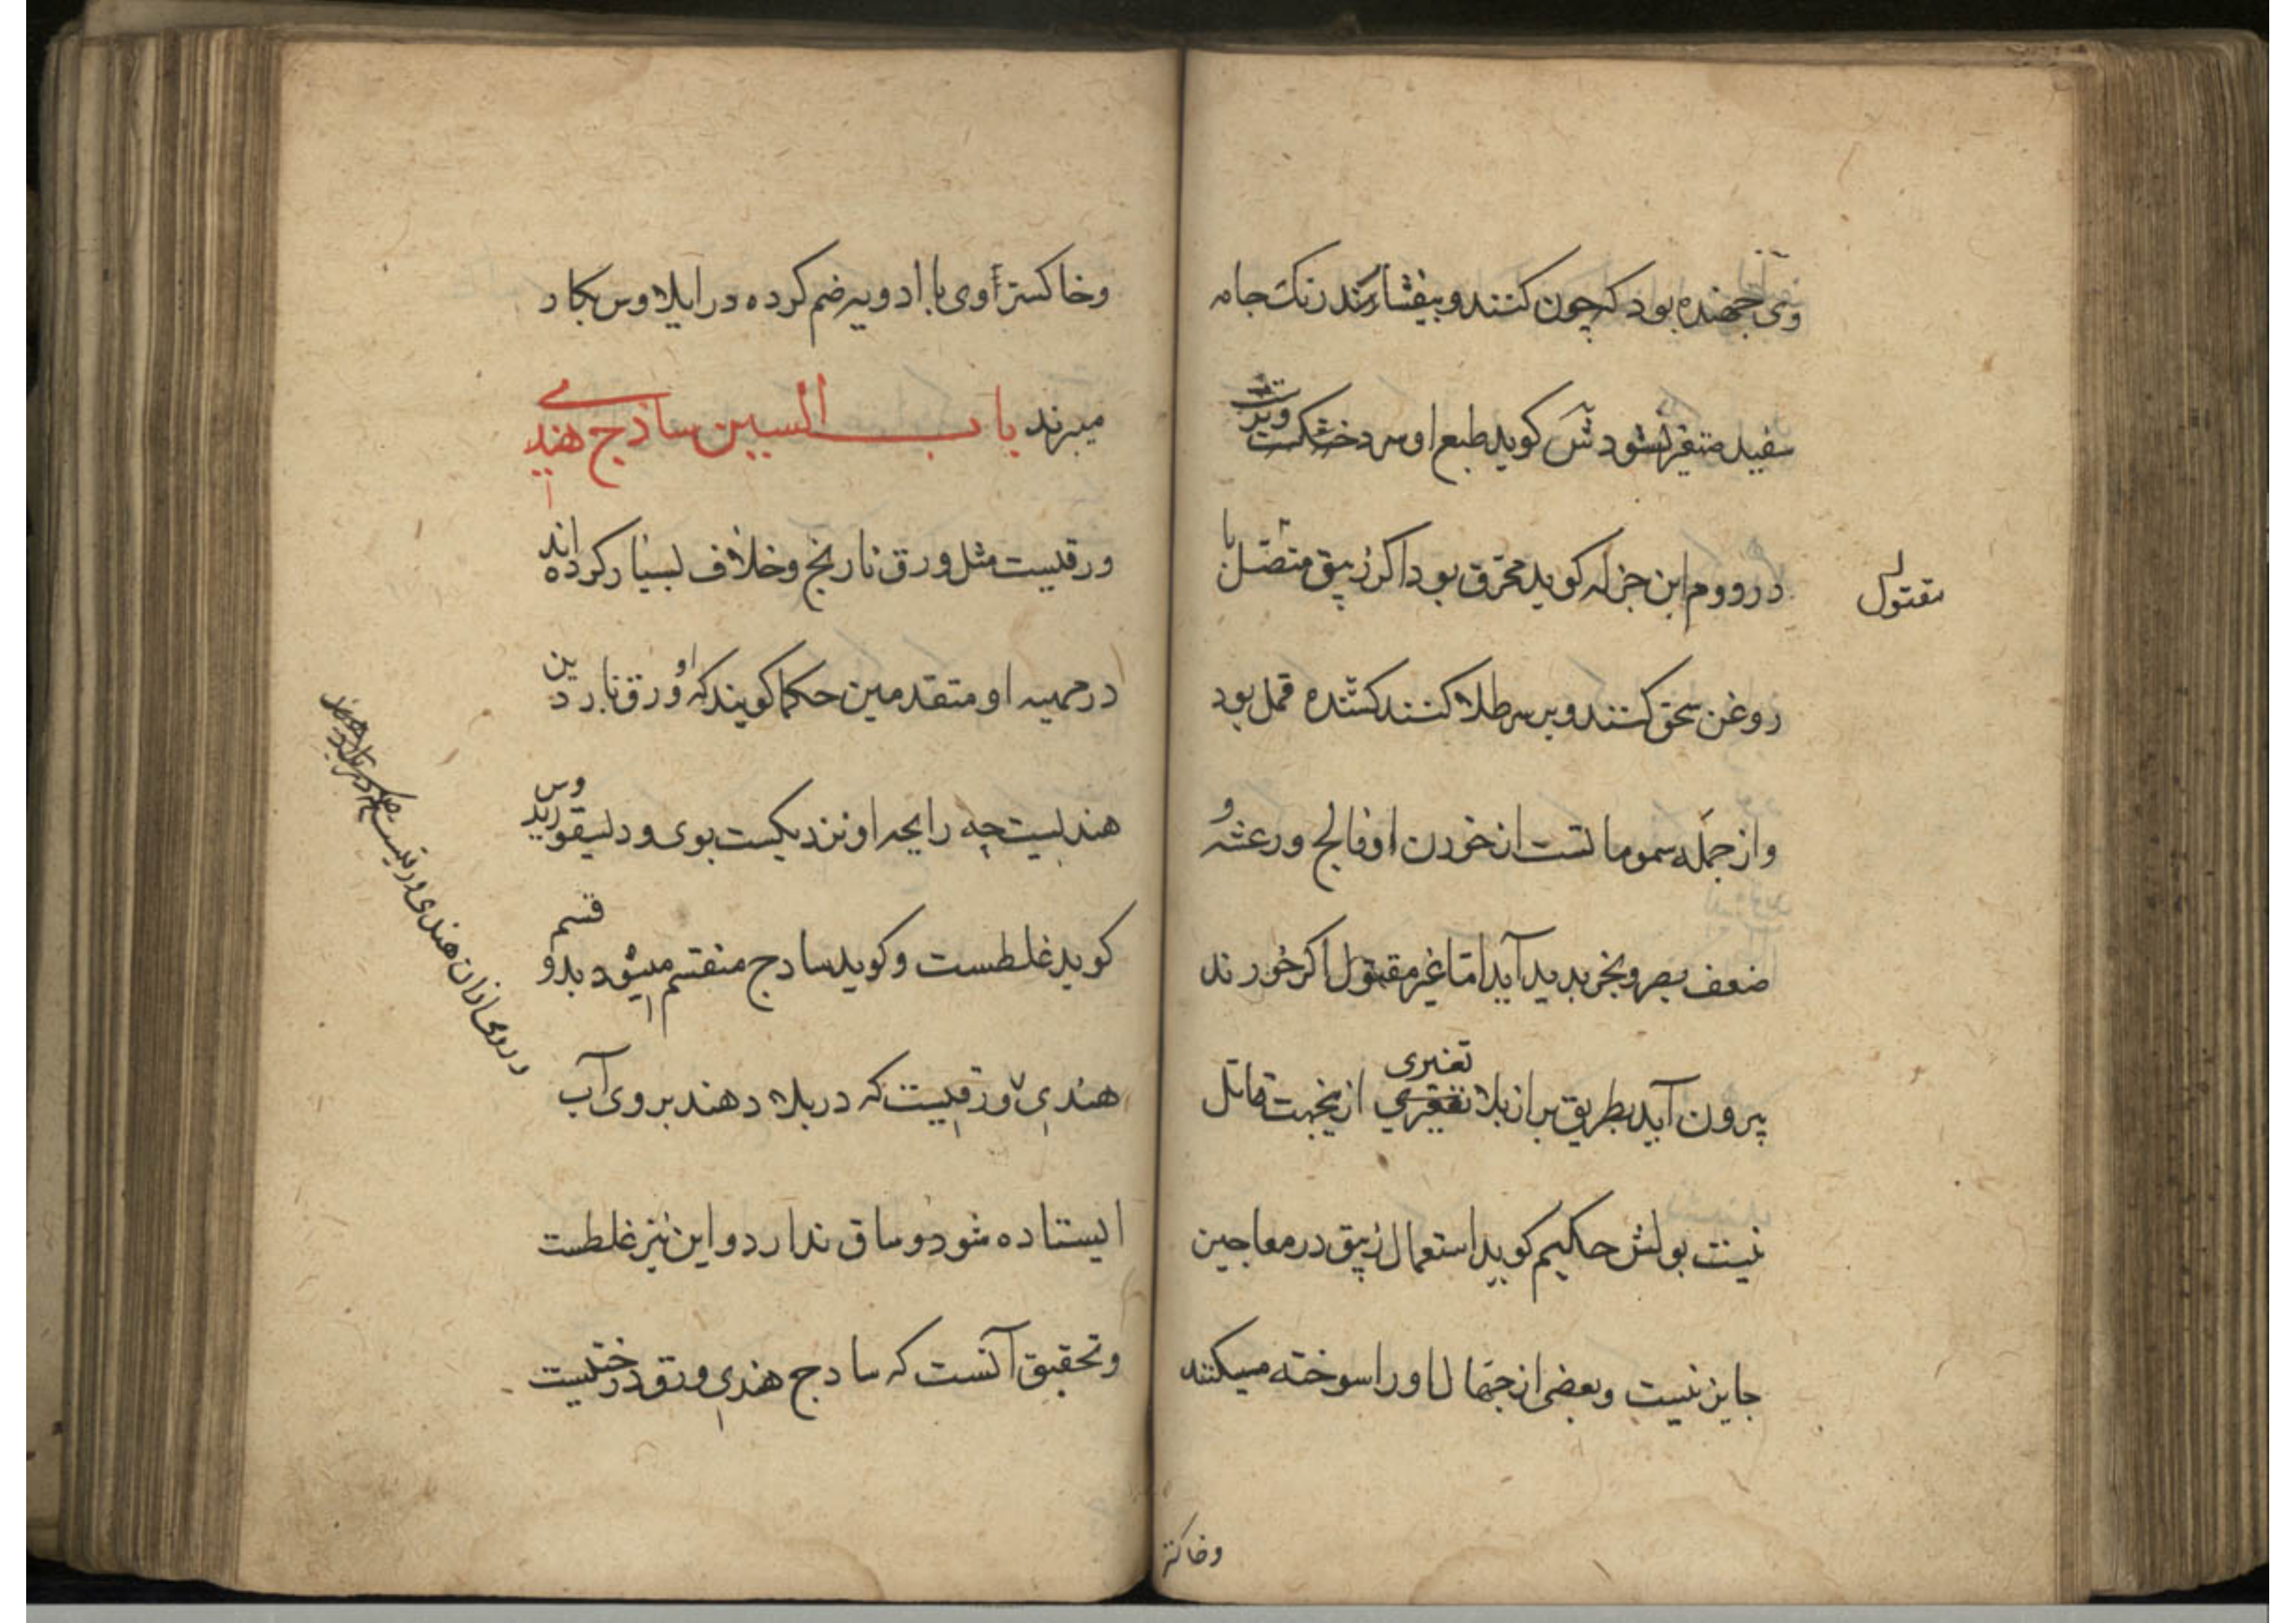 وی جهنده بود که چون کنند و بیفشارند رنک جامه
سفید متغیر نشود شی کوید طبع او سرد خشکست وتر
در دووم ابن جزله کوید محترق بود اکر زیبق متصل با
مقتول
روغن سحق کنند و بر سر طلا کنند کشنده قمل بود
و از جمله سمومانست از خوردن او فالج و رعشه و
ضعف بصر و بخر بدید آید اما غیر مقتول اکر خورند
بیرون آید بطریق براز بلا تغیری تغیری ازینجهت قاتل
نیست بولش حکیم کوید استعمال زیبق در معاجین
جایز نیست و بعضی از جهال او را سوخته میکنند
وخاکستر
وخاکستر اوی با ادویه ضم کرده در ایلاوس بکار
میبرند باب السین ساذج هندی
ورقیست مثل ورق نارنج وخلاف بسیار کرده اند
در مهیه او متقدمین حکما کویند که او ورق ناردین
هندیست چه رایحه او نزدیکست بوی و دلیقوریدوس
کوید غلطست و کوید سادج منقسم میشود بدو قسم
هندی ورقیست که در بلاد هند بروی آب
ایستاده شود و ساق ندارد و این نیز غلطست
وتحقیق آنست که سادج هندی ورق درختیست
در روی از ان هندی ورقیست که در بلاد هند